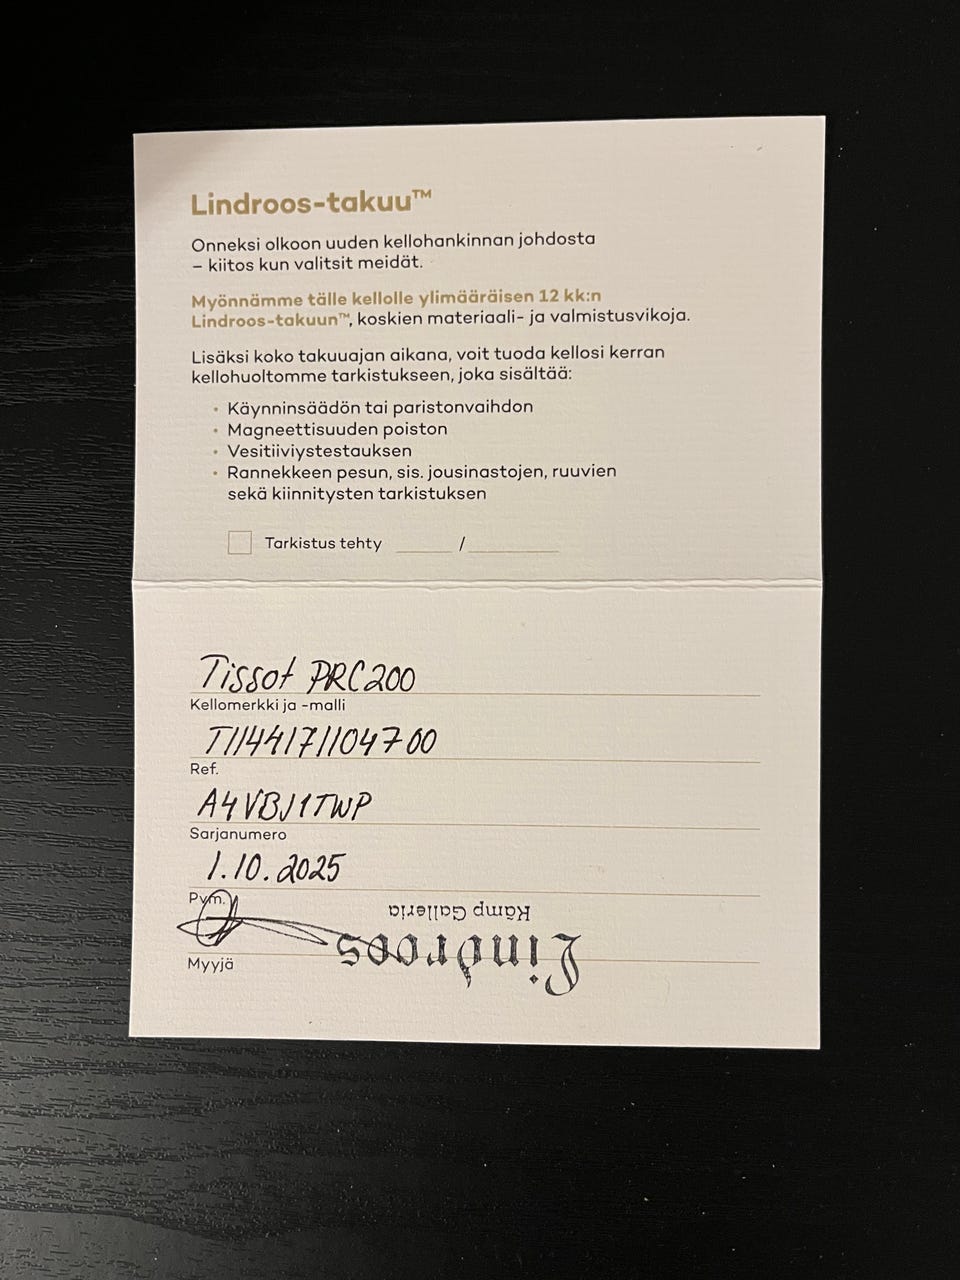 Lindroos-takuu™
Onneksi olkoon uuden kellohankinnan johdosta
– kiitos kun valitsit meidät.
Myönnämme tälle kellolle ylimääräisen 12 kk:n
Lindroos-takuun™, koskien materiaali- ja valmistusvikoja.
Lisäksi koko takuuajan aikana, voit tuoda kellosi kerran
kellohuoltomme tarkistukseen, joka sisältää:
• Käynninsäädön tai paristonvaihdon
• Magneettisuuden poiston
• Vesitiiviystestauksen
• Rannekkeen pesun, sis. jousinastojen, ruuvien
sekä kiinnitysten tarkistuksen
Tarkistus tehty ____ /________
Tissot PRC200
Kellomerkki ja -malli
T1144171104700
Ref.
A4VBJ1TWP
Sarjanumero
1.10.2025
Pvm.
Kämp Galleria
Lindroos
Myyjä